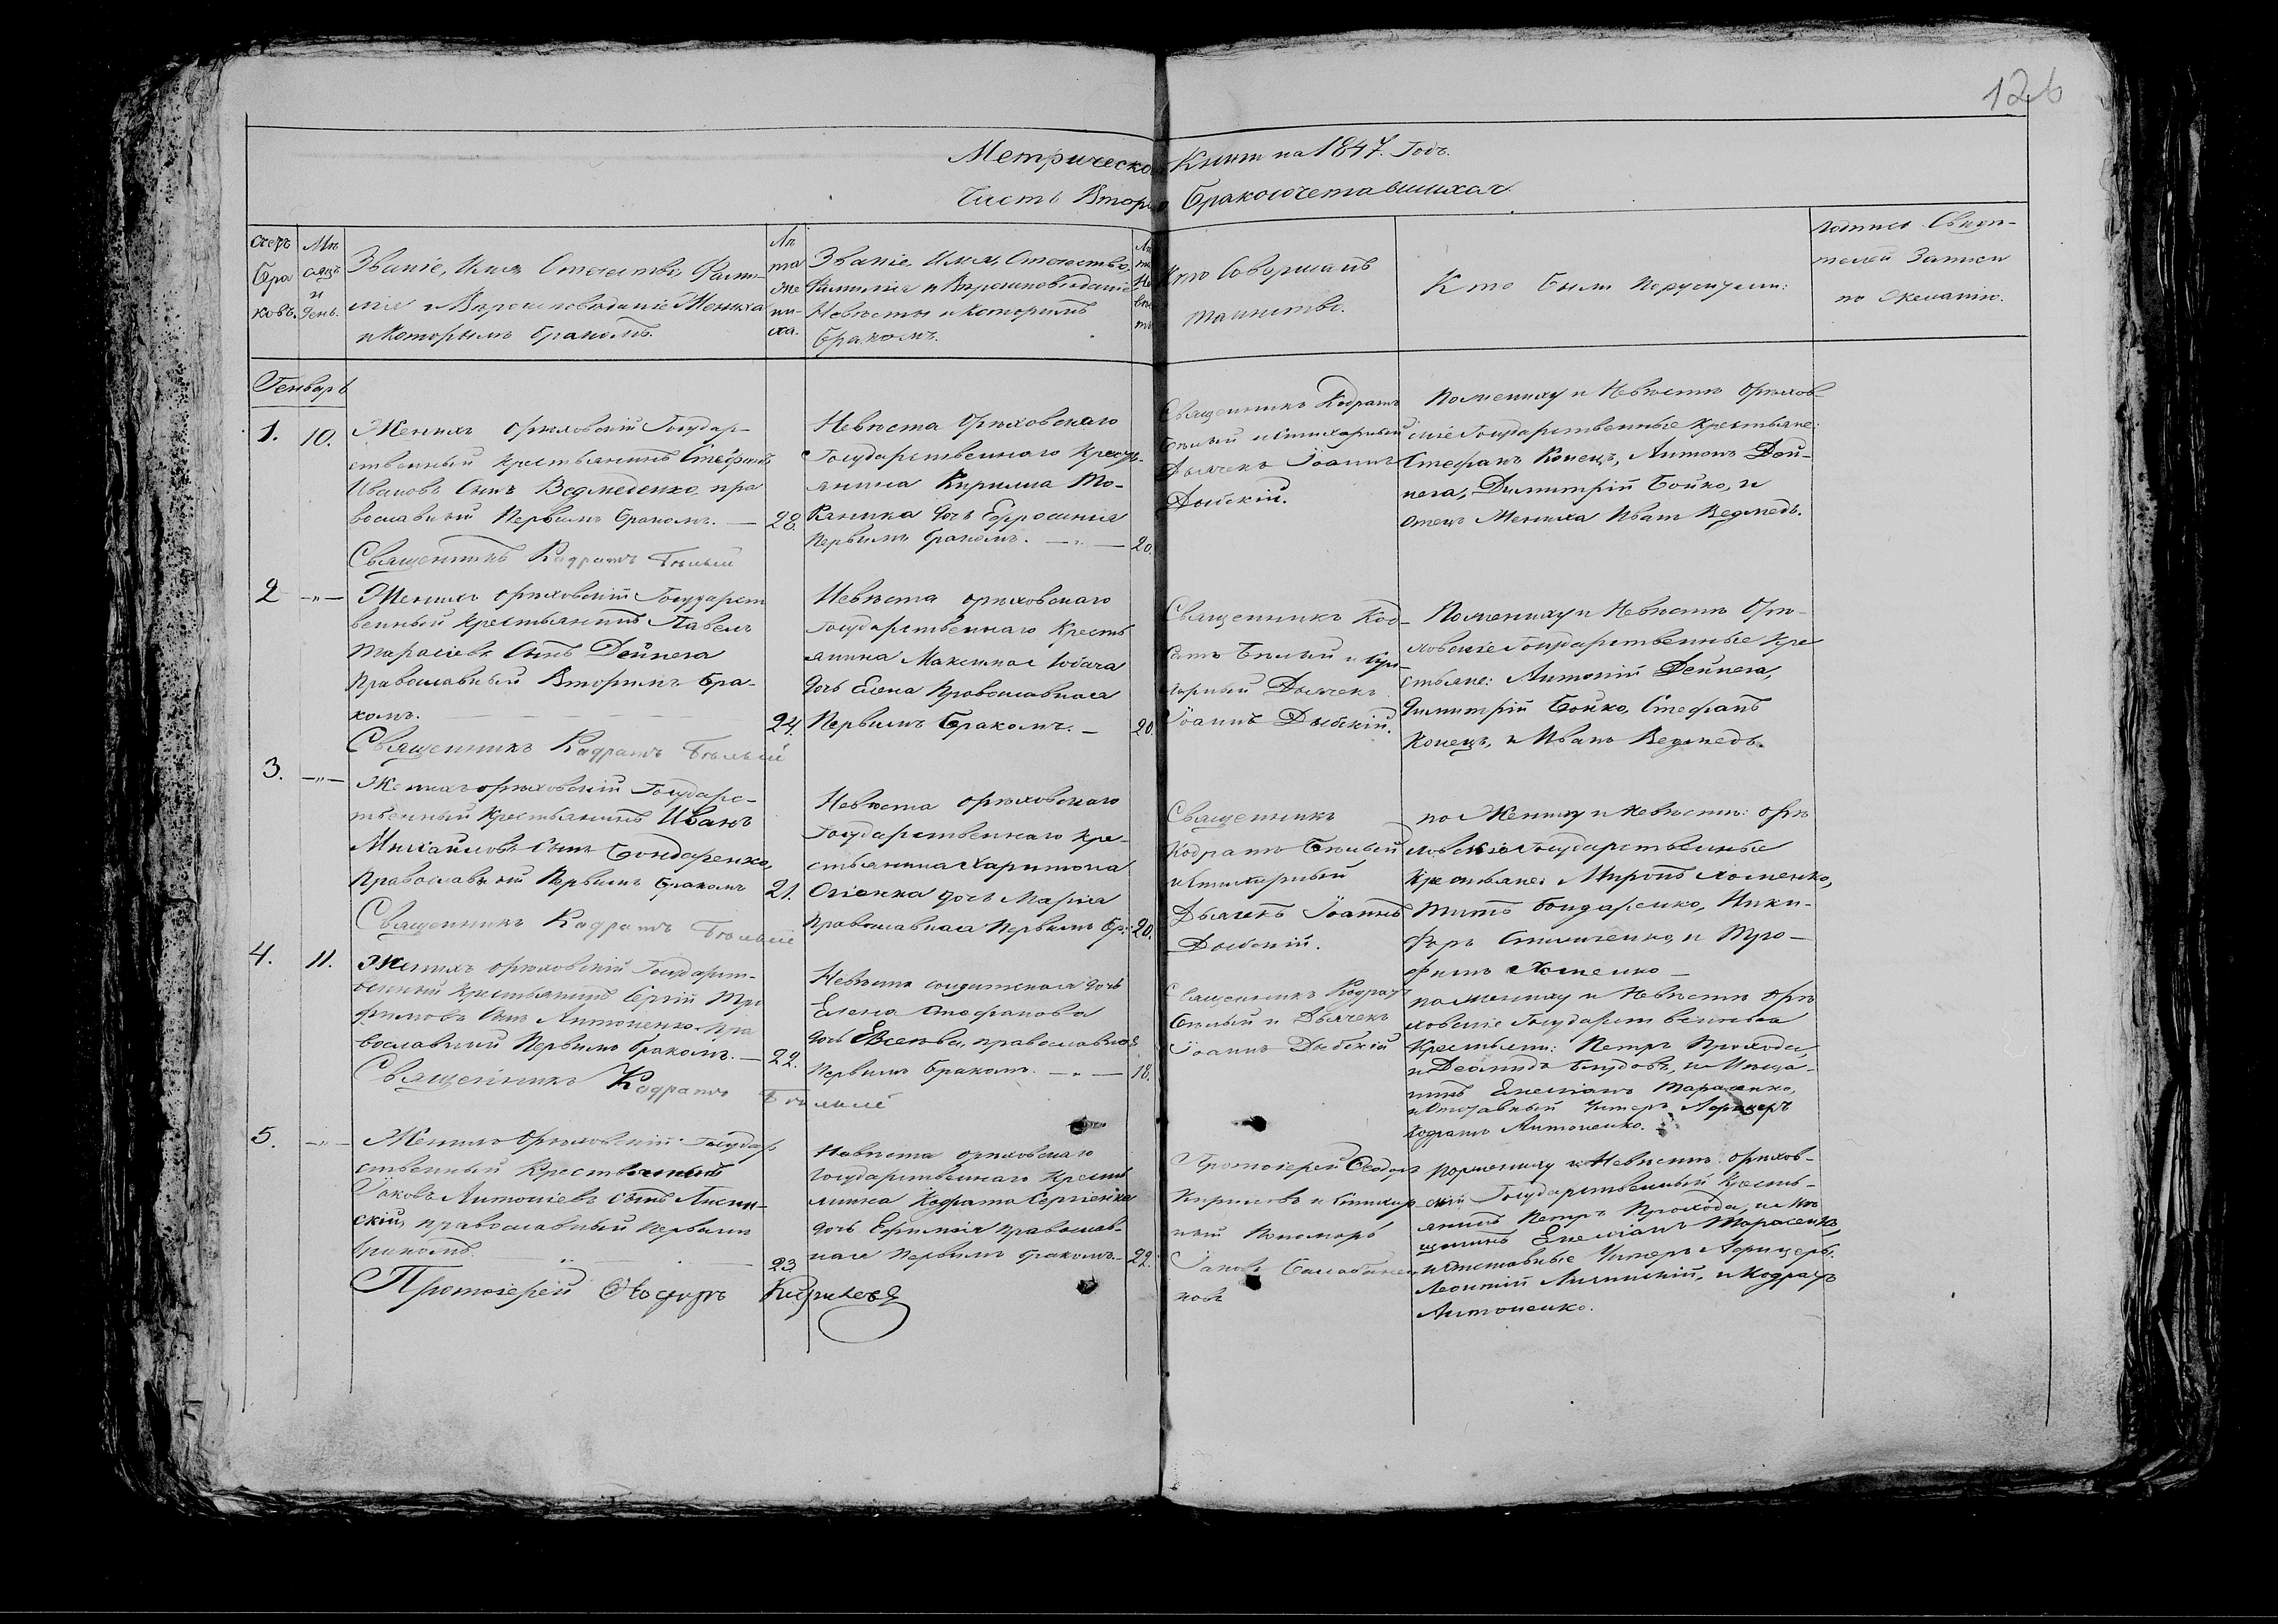 126
Метрической Книги на 1847. Годъ.
Часть Вторая Бракосочетавшихся.
Счетъ Браковъ.
Мѣсяцъ и день.
Званіе, Имя, Отечество, Фами-
лія и Вѣроисповѣданіе Жениха
и Которымъ бракомъ.
Лѣта жениха.
Званіе, Имя, Отечество,
Фамилія и Вѣроисповѣданіе
Невѣсты и Которымъ
бракомъ.
Лѣта Невѣсты
Кто Совершалъ
таинство.
Кто были поручители:
подпись Свидѣ-
телей Записи
по желанію.
Генварь
1. 10.
Женихъ орѣховскій Государ-
ственный крестьянинъ Стефанъ
Ивановъ Сынъ Ведмеденко, пра
вославный Первымъ бракомъ. — 28.
Священникъ Кодратъ Бѣлый
Невѣста Орѣховскаго
Государственнаго Кресть-
янина Кирилла
дочь Ефросинія
Первымъ бракомъ. — „ — 20.
Священникъ Кодратъ
Бѣлый и Стихарный
Дьячекъ Іоаннъ
Дыбскій.
По жениху и Невѣстѣ Орѣхов-
скіе Государственные крестьяне:
Стефанъ Конецъ, Антонъ Дей-
нега, Димитрій Бойко, и
отецъ Жениха Иванъ Ведмедь.
2 — „ —
Женихъ орѣховскій Государст
венный крестьянинъ Павелъ
Тарасіевъ Сынъ Дейнега
Православный Вторымъ Бра-
комъ. 24.
Священникъ Кодратъ Бѣлый
Невѣста орѣховскаго
Государственнаго Кресть
янина Максима
дочь Елена Православная
Первымъ Бракомъ. — 20.
Священникъ Код-
ратъ Бѣлый и
Дьячекъ
Іоаннъ Дыбскій.
По жениху и Невѣстѣ Орѣ-
ховскіе Государственные Кре
стьяне: Антоній Дейнега,
Димитрій Бойко, Стефанъ
Конецъ, и Иванъ Ведмедь.
3. — „ —
Женихъ орѣховскій Государс-
твенный Крестьянинъ Иванъ
Михайловъ Сынъ Бондаренко,
Православный Первымъ бракомъ 21.
Священникъ Кодратъ Бѣлый
Невѣста орѣховскаго
Государственнаго Кре-
стьянина Харитона
дочь Марія
Православная Первымъ Бр: 20.
Священникъ
Кодратъ Бѣлый
и Стихарный
Дьячекъ Іоаннъ
Дыбскій.
по Жениху и Невѣстѣ: орѣ
ховскіе Государственные
Крестьяне: Миронъ Хоменко,
Титъ Бондаренко, Ники-
форъ и Тро-
фимъ Хоменко —
4. 11.
Женихъ орѣховскій Государст-
венный Крестьянинъ Сергій Тро
фимовъ Сынъ Антоненко, пра
вославный Первымъ бракомъ. — 22.
Священникъ Кодратъ Бѣлый
Невѣста солдатская дочь
Елена Стефанова
дочь православная
Первымъ бракомъ. — „ — 18.
Священникъ Кодратъ
Бѣлый и Дьячекъ
Іоаннъ Дыбскій
по жениху и Невѣстѣ Орѣ
ховскіе Государственные
Крестьяне: Петръ Прохода,
и и Мѣща-
нинъ Емеліанъ Тарасенко,
и Отставный Унтеръ Афицеръ
Кодратъ Антоненко.
5. — „ —
Женихъ Орѣховскій Государ
ственный Крестьянинъ
Іаковъ Антоніевъ Сынъ
православный Первымъ
бракомъ. 23.
Протоіерей Ѳеодоръ Кириловъ
Невѣста орѣховскаго
Государственнаго Кресть
янина Кодрата Сергіенка
дочь Ефимія Православ-
ная Первымъ бракомъ. — 22.
Протоіерей Ѳеодоръ
Кириловъ и Стихар
ный Пономарь
Іаковъ
по жениху и Невѣстѣ орѣхов-
скій Государственный Кресть-
янинъ Петръ Прохода, и Мѣ
щанинъ Емеліанъ Тарасенко,
и Отставные Унтеръ Афицеры:
Леонтій и Кодратъ
Антоненко.